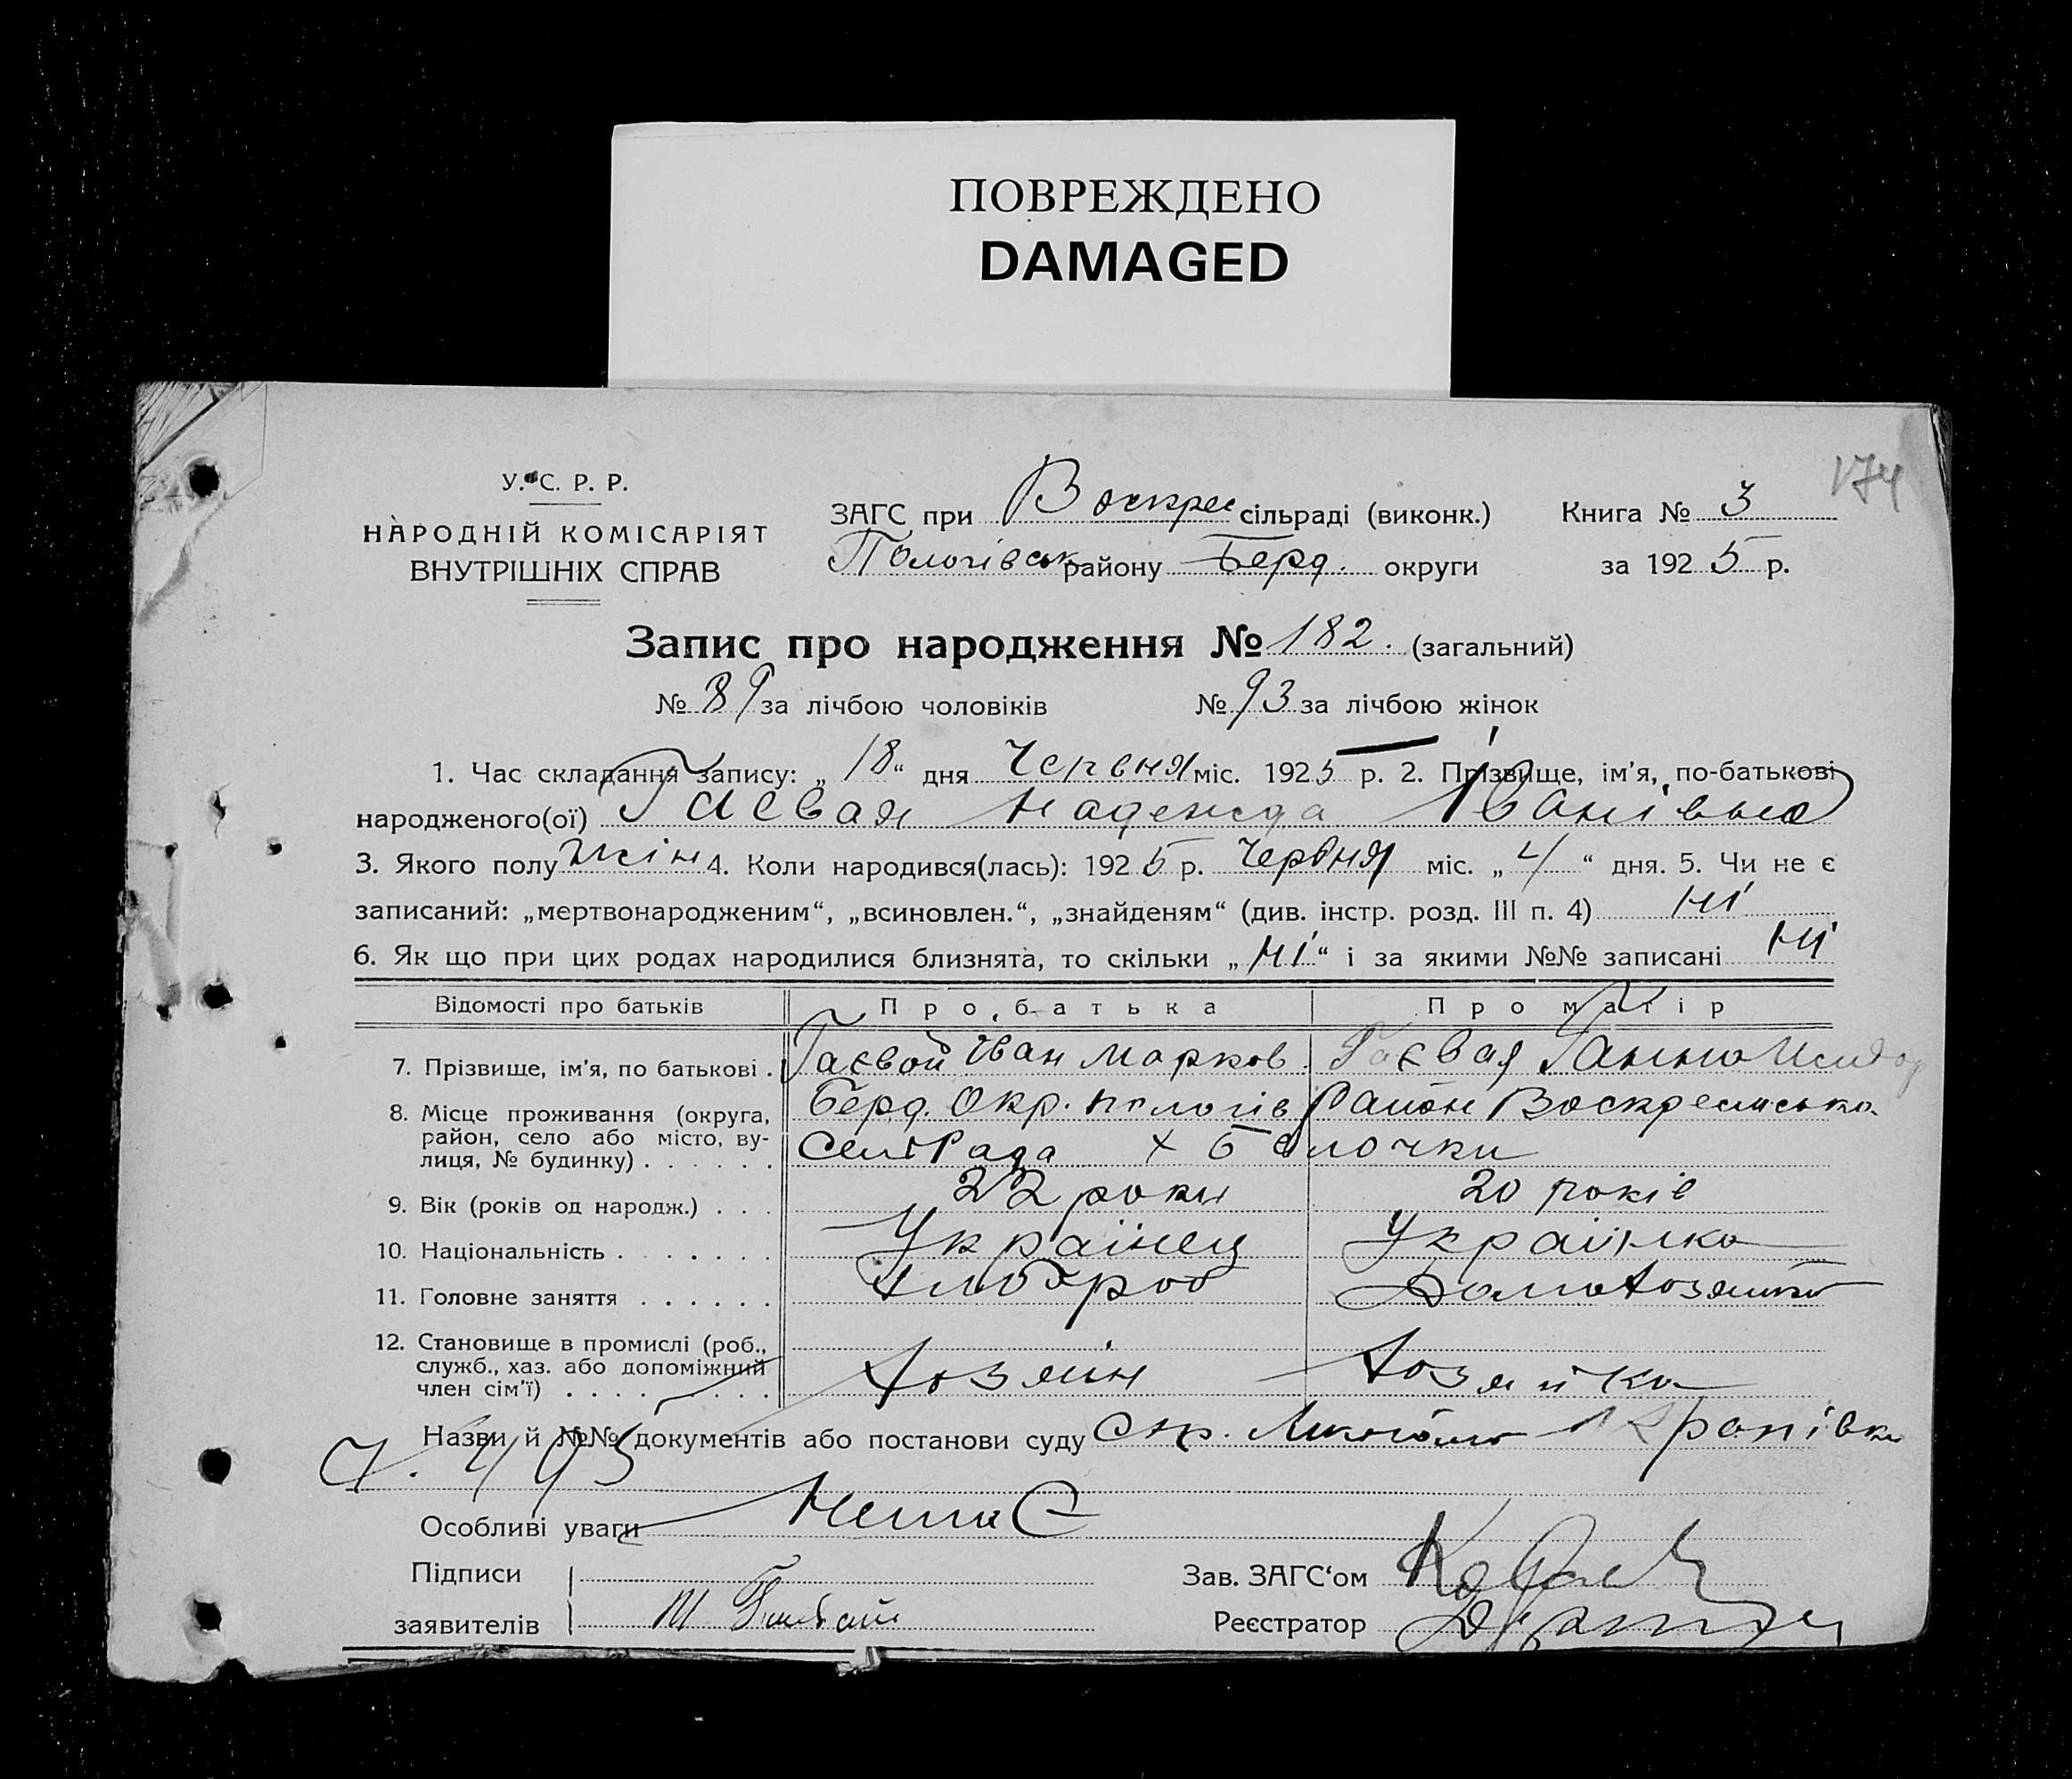 ПОВРЕЖДЕНО
DAMAGED
174
У. С. Р. Р.
НАРОДНІЙ КОМІСАРІЯТ
ВНУТРІШНІХ СПРАВ
ЗАГС при Воскрес сільраді (виконк.) Книга № 3
Пологівськ району Берд. округи за 1925 р.
Запис про народження № 182. (загальний)
№ 89 за лічбою чоловіків № 93 за лічбою жінок
1. Час складання запису: „18“ дня Червня міс. 1925 р. 2. Прізвище, ім'я, по-батькові
народженого(ої) Гаєвая Надежда Іванівна
3. Якого полу жін 4. Коли народився(лась): 1925 р. Червня міс. „4“ дня. 5. Чи не є
записаний: „мертвонародженим“, „всиновлен.“, „знайденям“ (див. інстр. розд. III п. 4) ні
6. Як що при цих родах народилися близнята, то скільки „ні“ і за якими №№ записані ні
Відомості про батьків Про батька Про матір
7. Прізвище, ім'я, по батькові . Гаєвой Іван Марков. Гаєвая Ганна
8. Місце проживання (округа, район, село або місто, ву-лиця, № будинку) . . . . . . Берд. Окр. Пологів Район Воскресенська
СельРада х Балочки
9. Вік (років од народж.) . . . 22 роки 20 років
10. Національність . . . . . . . Українец Українка
11. Головне заняття . . . . . . Хлібороб Домохозяйка
12. Становище в промислі (роб.,
служб., хаз. або допоміжний
член сім'ї) . . . . . . . . . Хозяїн Хозяйка
Назви й №№ документів або постанови суду
Особливі уваги Немає
Підписи
заявителів
Зав. ЗАГС'ом
Реєстратор